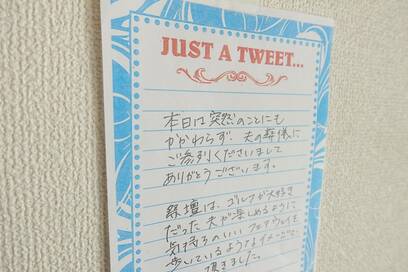 JUST A TWEET...
本日は突然のことにも
かかわらず、夫の葬儀に
ご参列くださいまして
ありがとうございます。
祭壇は、ゴルフが大好き
だった夫が楽しめるように
気持ちのいいフェアウェイを
歩いているようなイメージで
頂きました。